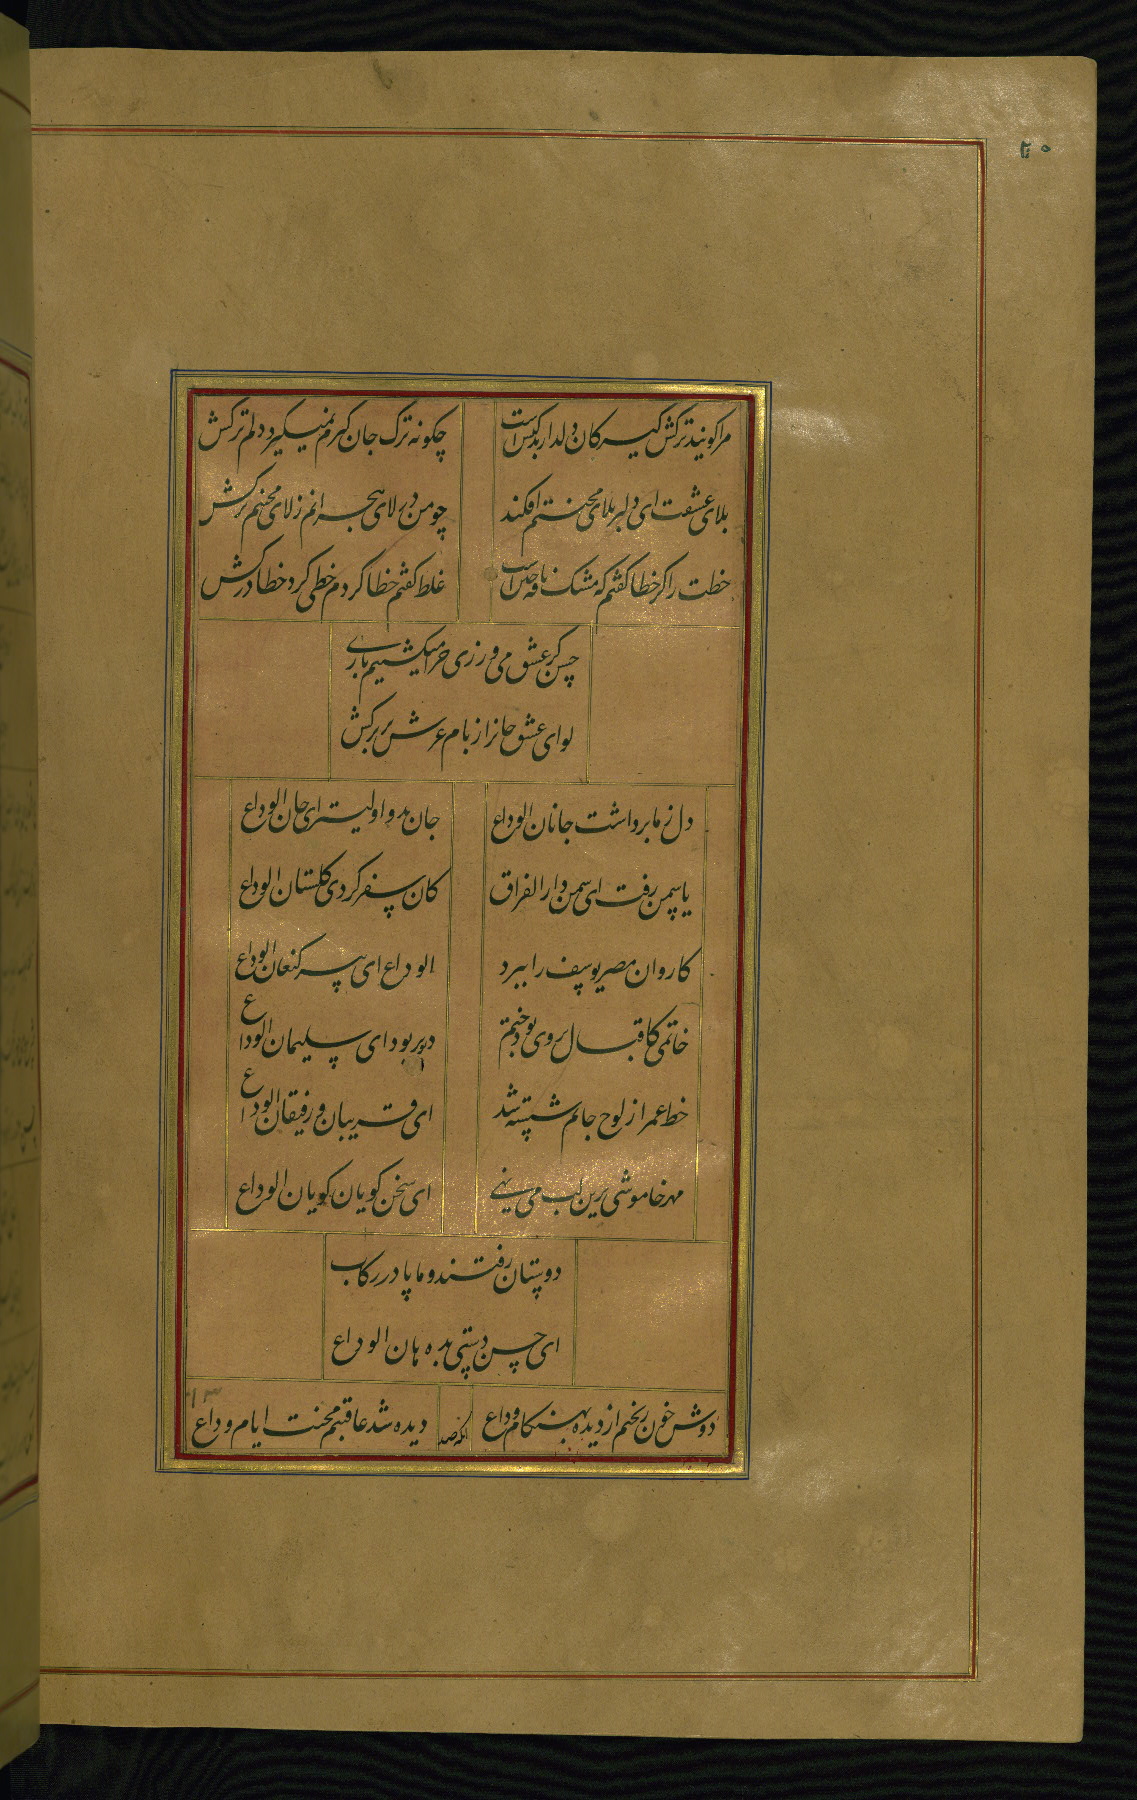 مرا گویند ترکش گیر کان دلدار بدکیش است
چگونه ترک جان گیرم نمیگیرد دلم ترکش
بلای عشقت ای دلبر بلای محنتم افکند
چو من در لای هجرانم ز لای محنتم برکش
خطت را گر خطا گفتم که مشک نافه چین است
غلط گفتم خطا کردم خطی گرد خطا درکش
حسن گر عشق می ورزی خرامیکشیم باری
لوای عشق جانرا از بام عرش برکش
دل ز ما برداشت جانان الوداع
جان بدو اولیتر ای جان الوداع
یاسمن رفت ای سمن دار الفراق
کان سفر کردی گلستان الوداع
کاروان مصر یوسف را ببرد
الوداع ای پیر کنعان الوداع
خاتمی کاقبال بروی بود ختم
دیو ربود ای سلیمان الوداع
خط عمر از لوح جانم شسته شد
ای قریبان و رفیقان الوداع
مهر خاموشی برین لب می نهی
ای سخن گویان گویان الوداع
دوستان رفتند و ما پا در رکاب
ای حسن دستی بده هان الوداع
دوش خون ریختم از دیده بهنگام وداع
دیده شد عاقبتم محنت ایام وداع